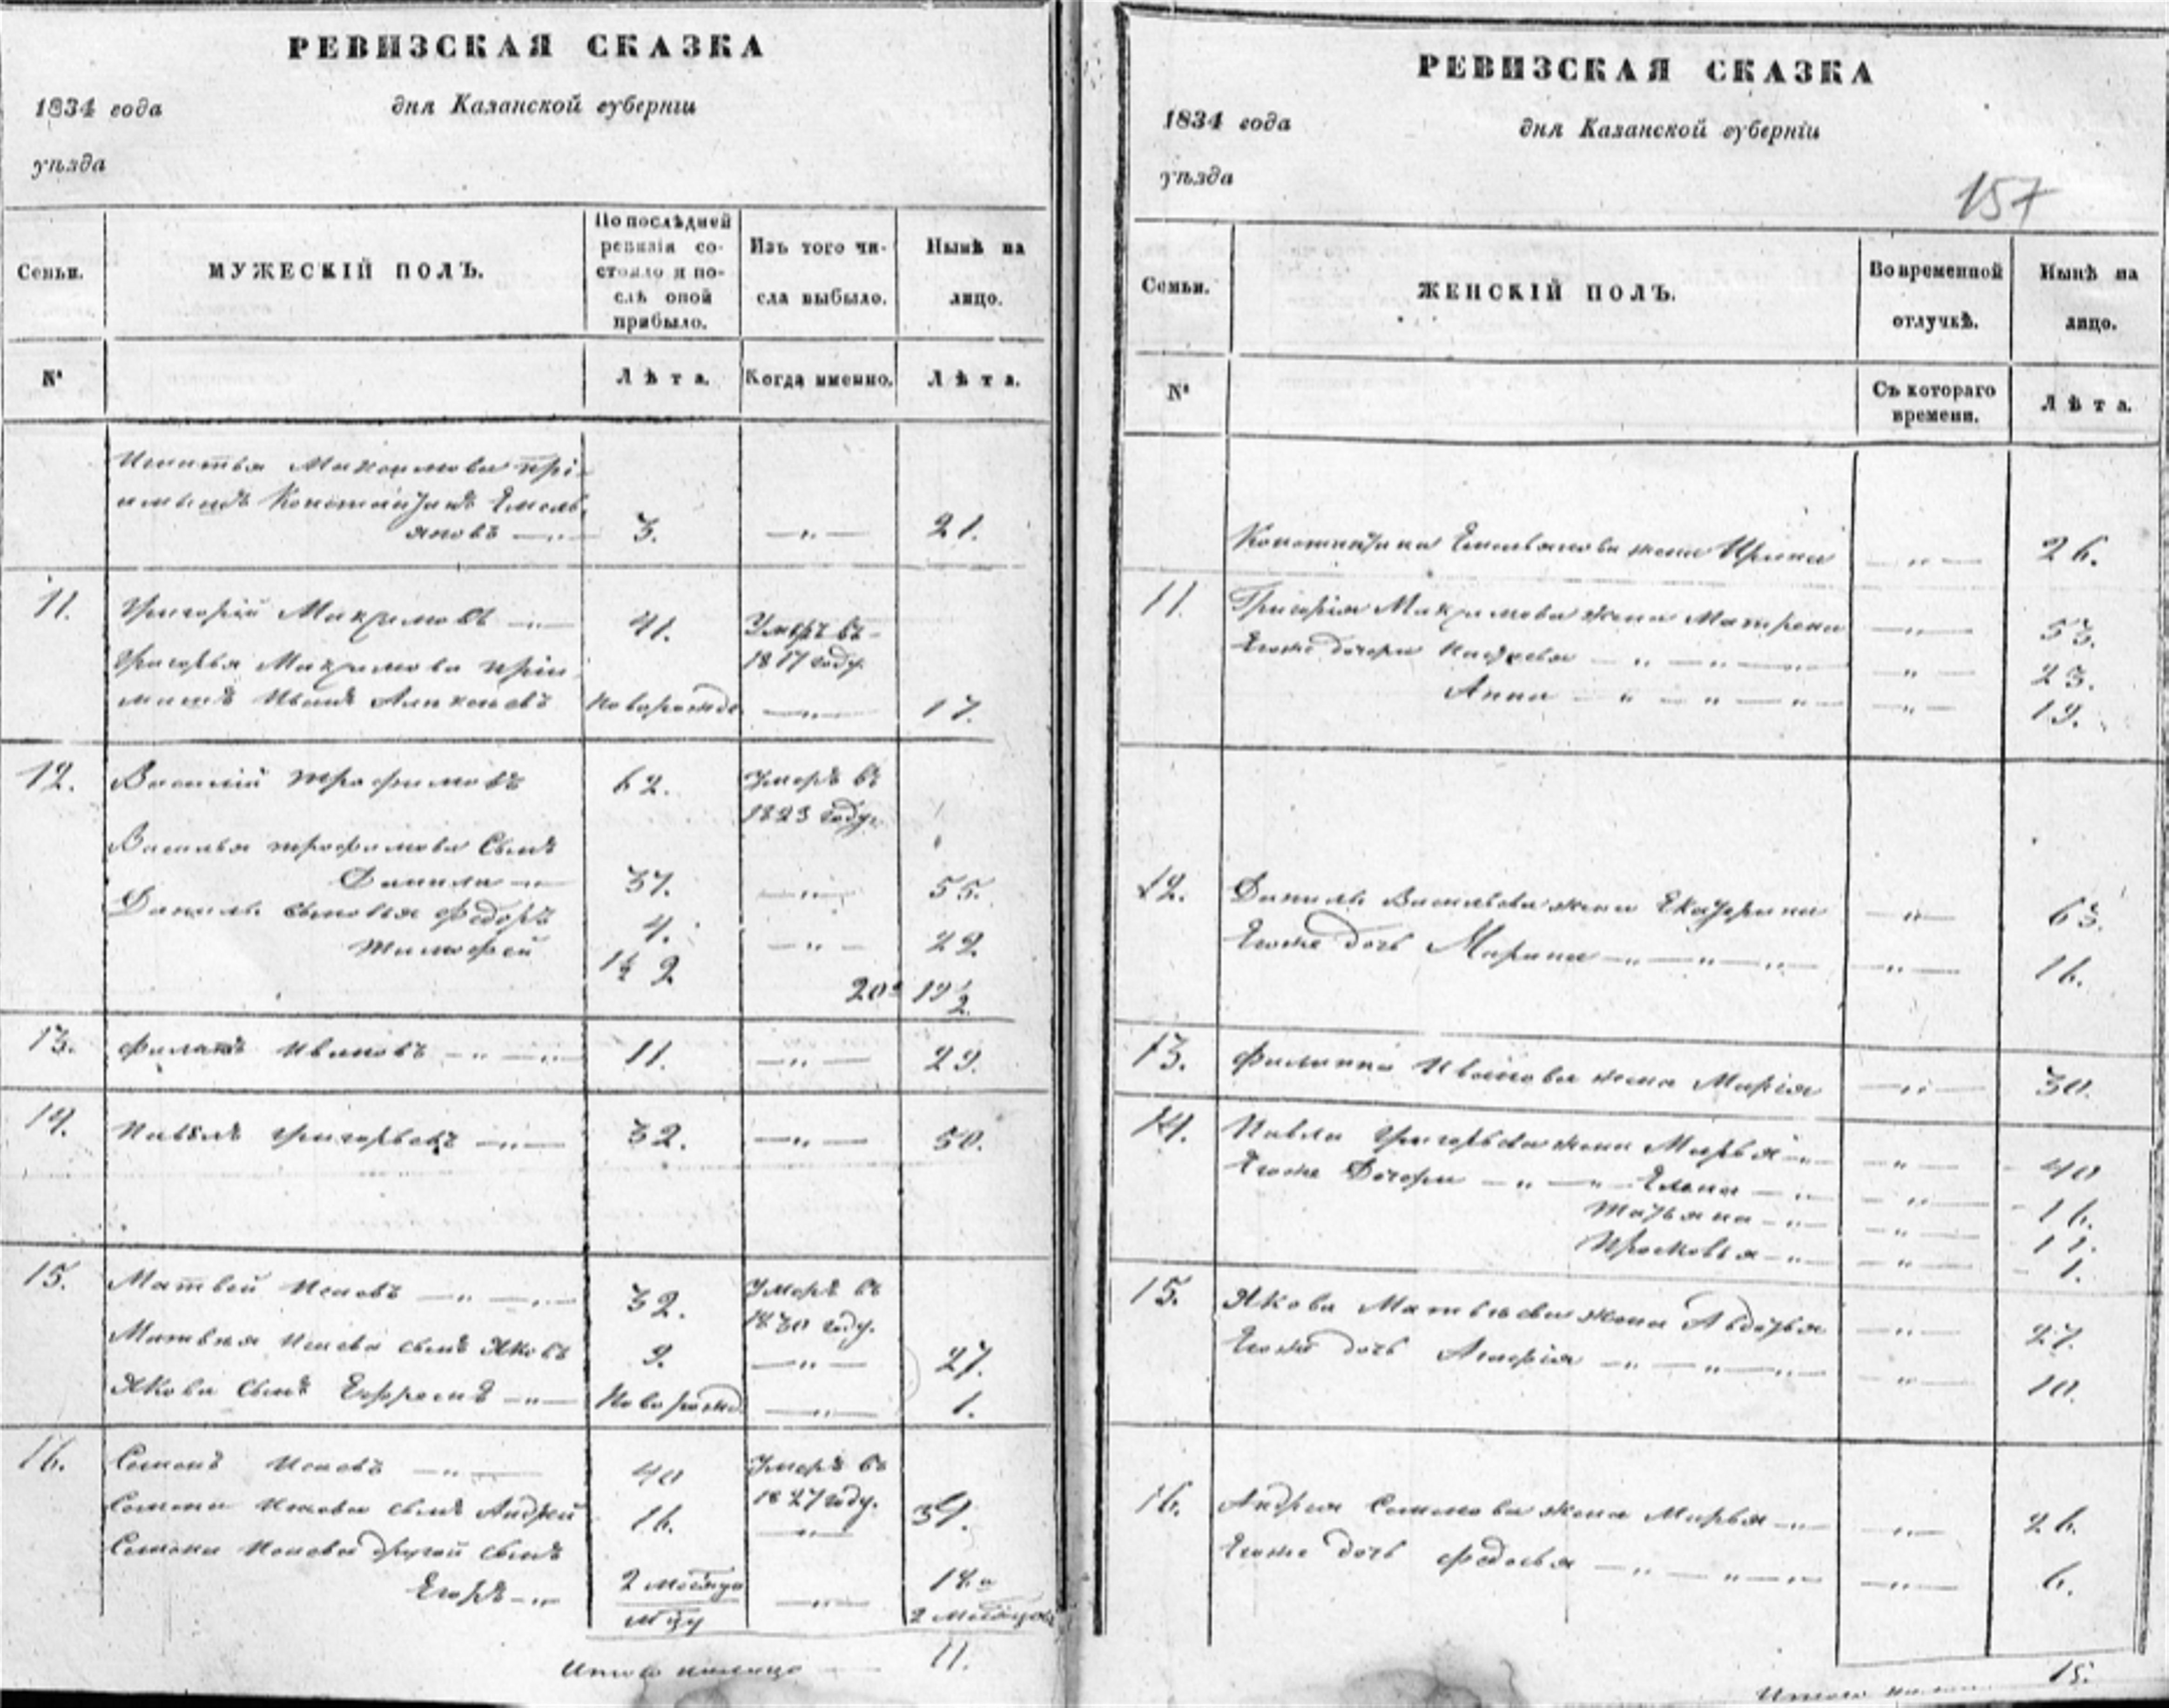 РЕВИЗСКАЯ СКАЗКА
1834 года дня Казанской губерніи
уѣзда
Семьи. МУЖЕСКІЙ ПОЛЪ. По послѣдней ревизіи состояло и послѣ оной прибыло. Изъ того числа выбыло. Нынѣ на лицо.
№ Лѣта. Когда именно. Лѣта.
Игнатья Максимова прі-
имышъ Константинъ Емель-
яновъ — 3. — „ — 21.
11. Григорій Максимовъ — 41. Умеръ въ
1817 году.
Григорья Максимова прiи-
мышъ Иванъ новорожде — 17.
12. Василій Трофимовъ 62. Умеръ въ
1823 году.
Василья Трофимова Сынъ
Данила — 37. — „ — 55.
Данилы сыновья Федоръ 4. — „ — 22.
Тимофей 1½ 2 20 19½
13. Филатъ Ивановъ — „ — 11. — „ — 29.
14. Павелъ Григорьевъ — „ — 32. — „ — 50.
15. Матвей Исаевъ — „ — 32. Умеръ въ
1830 году.
Матвея Исаева сынъ Яковъ 9. — „ — 27.
Якова Сынъ Ефремъ — „ — Новорожд — „ — 1.
16. Семенъ Исаевъ — „ — 40 Умеръ въ
1827 году.
Семена Исаева сынъ Андрей 16. — „ — 34.
Семена Исаева другой сынъ
Егоръ — „ 2 месяца — „ — 18 и
2 месяцовъ
Итого налицо 11.
РЕВИЗСКАЯ СКАЗКА
1834 года дня Казанской губерніи
уѣзда
157
Семьи. ЖЕНСКІЙ ПОЛЪ. Во временной отлучкѣ. Нынѣ на лицо.
№ Съ котораго времени. Лѣта.
Константина Емельянова жена Ирина — „ — 26.
11. Григорія Максимова жена Матрена — „ — 53.
Егоже дочери — „ — 23.
Анна — „ — „ — „ — 19.
12. Данилы Васильева жена Екатерина — „ — 63.
Егоже дочь Марина — „ — „ — „ — 16.
13. Иванова жена Марія — „ — 30.
14. Павла Григорьева жена Марья — „ — 40
Егоже Дочери — „ — „ — Елена — „ — 16.
Татьяна — „ — 11.
Прасковья — „ — 1.
15. Якова Матвеева жена Авдотья — „ — 27.
Егоже дочь — „ — „ — „ — 10.
16. Андрея Семенова жена Марья — „ — 26.
Егоже дочь Федосья — „ — „ — „ — 6.
Итого 15.